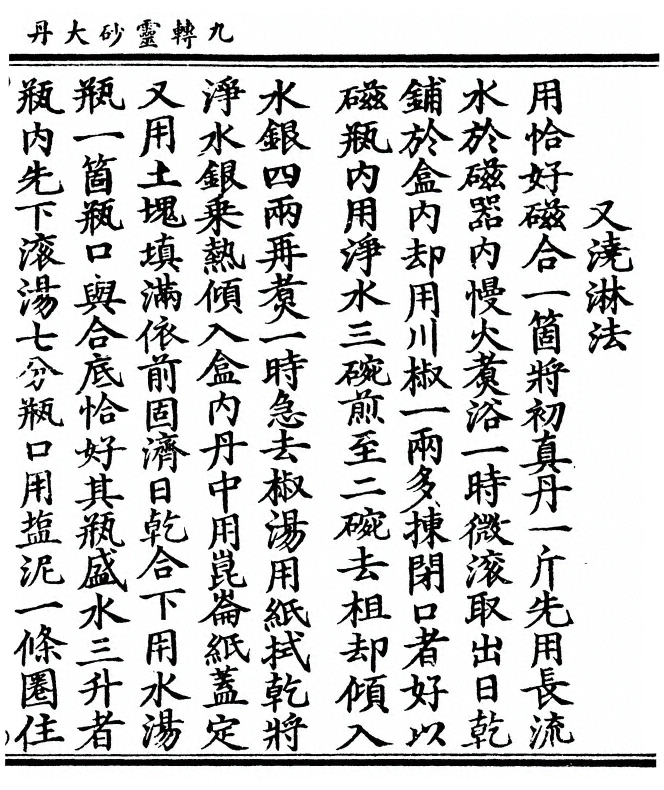 九轉靈砂大丹
又澆淋法
用恰好磁合一箇將初真丹一斤先用長流
水於磁器内慢火煑浴一時微滚取出日乾
鋪於盒内却用川椒一兩多揀閉口者好以
磁瓶内用淨水三碗煎至二碗去柤却傾入
水銀四兩再煑一時急去椒湯用紙拭乾將
淨水銀乗熱傾入盒内丹中用崑崙紙蓋定
又用土塊填滿依前固濟日乾合下用水湯
瓶一箇瓶口與合底恰好其瓶盛水三升者
瓶内先下滚湯七分瓶口用塩泥一條圈住